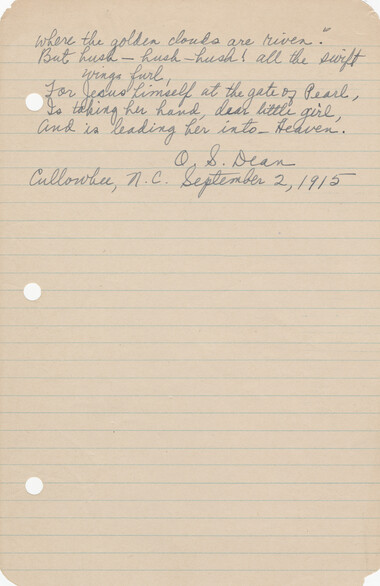 where the golden clouds are riven."
But hush – hush – hush! all the swift
wings furl,
For Jesus himself at the gate of Pearl,
Is taking her hand, dear little girl,
And is leading her into – Heaven.
O. S. Dean
Cullowhee, N.C. September 2, 1915